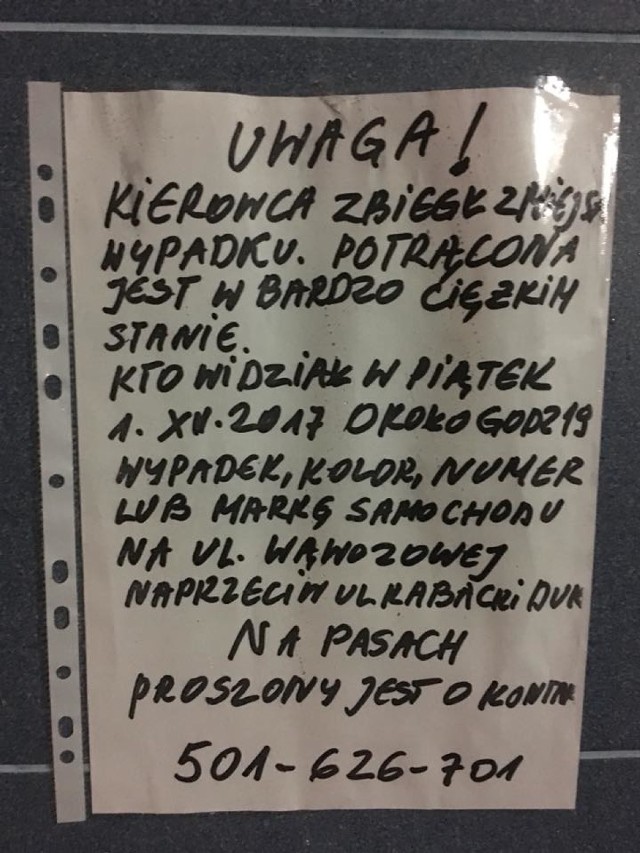 UWAGA!
KIEROWCA ZBIEGŁ Z MIEJS
WYPADKU. POTRĄCONA
JEST W BARDZO CIĘŻKIM
STANIE.
KTO WIDZIAŁ W PIĄTEK
1. XII. 2017 OKOŁO GODZ 19
WYPADEK, KOLOR, NUMER
LUB MARKĘ SAMOCHODU
NA UL. WĄWOZOWEJ
NAPRZECIW UL KABACKI DUK
NA PASACH
PROSZONY JEST O KONTAK
501-626-701